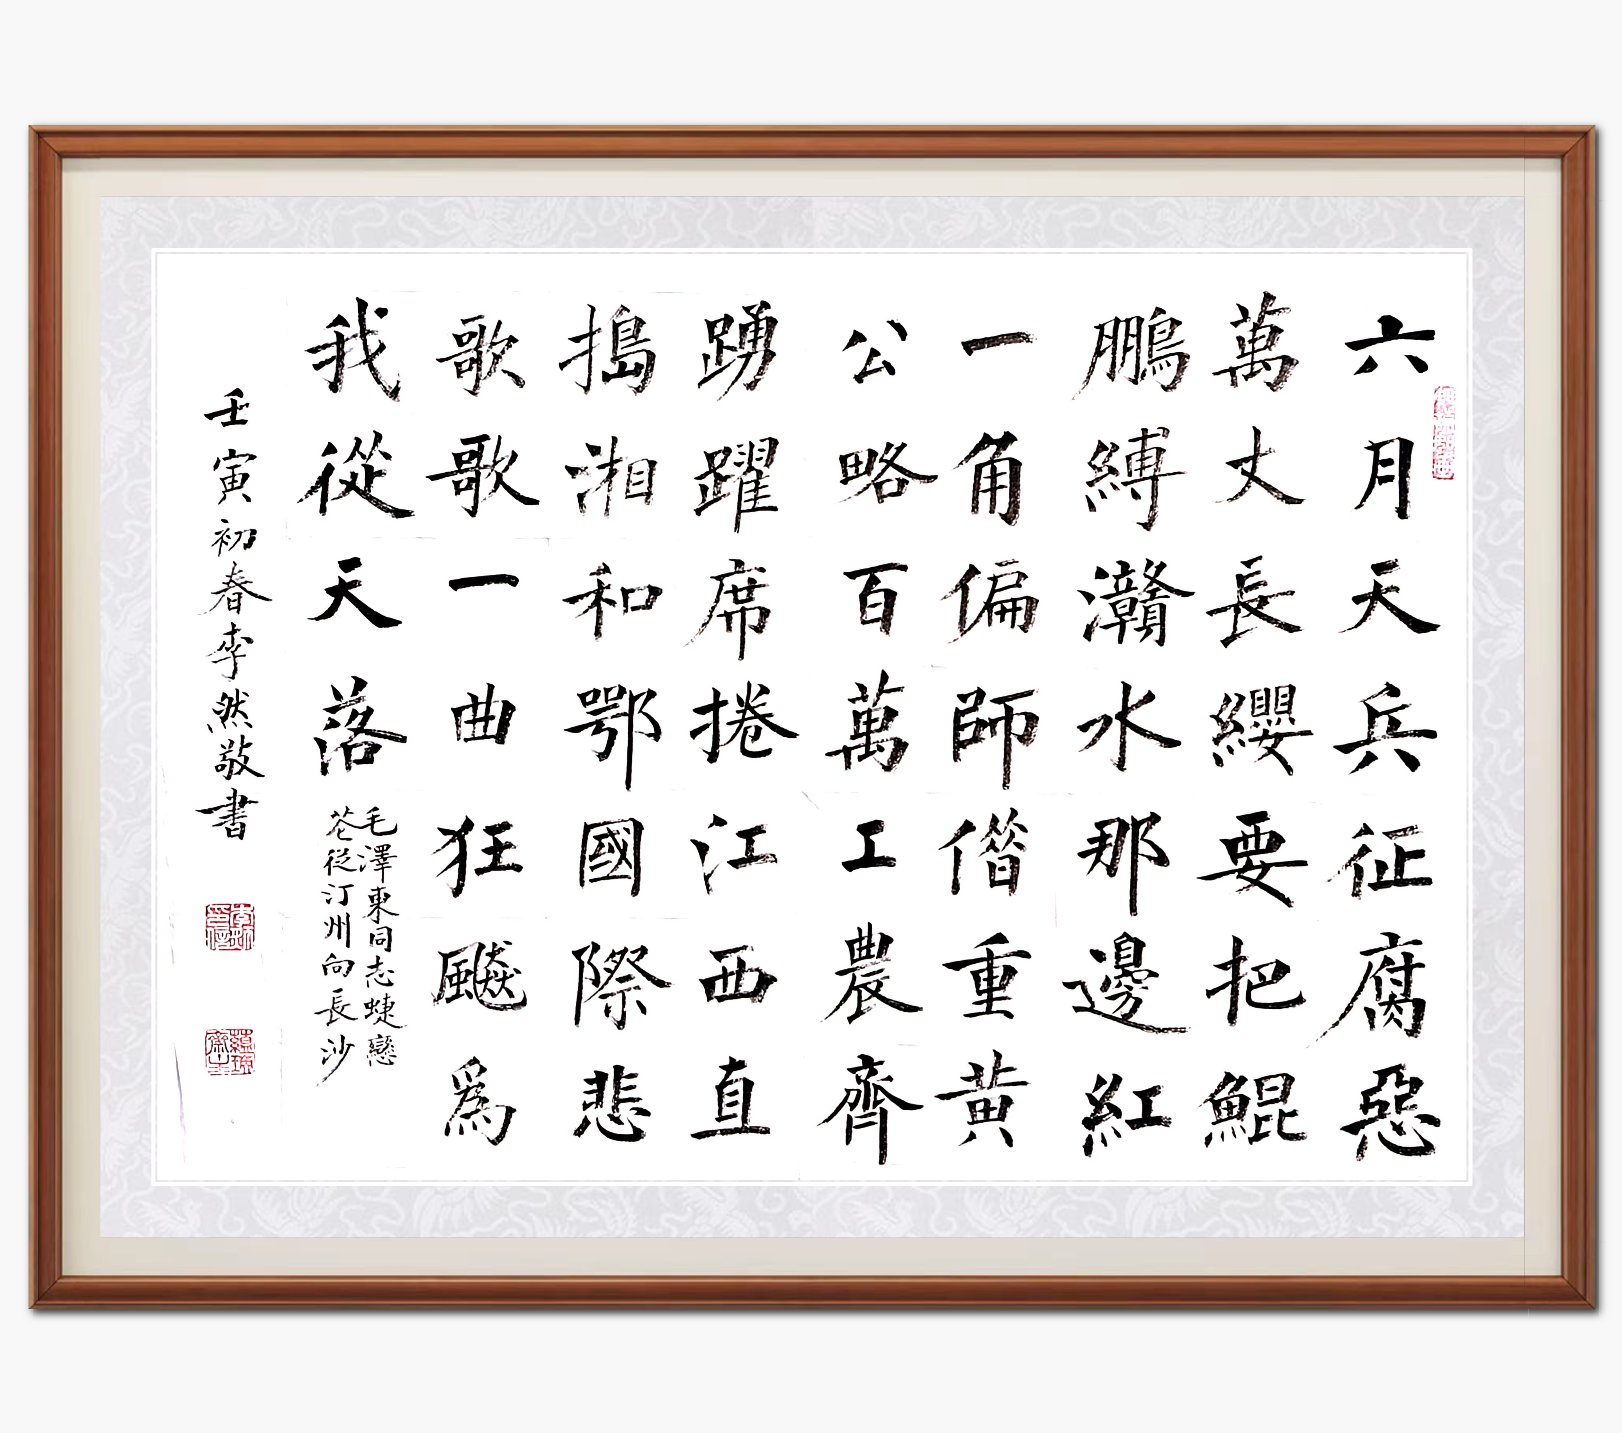 六月天兵征腐惡
萬丈長纓要把鯤
鵬縛灨水那邊紅
一角偏師偕重黄
公略百萬工農齊
踴躍席捲江西直
搗湘和鄂國際悲
歌歌一曲狂飈為
我從天落
毛澤東同志蝶戀
花從汀州向長沙
壬寅初春李然敬書